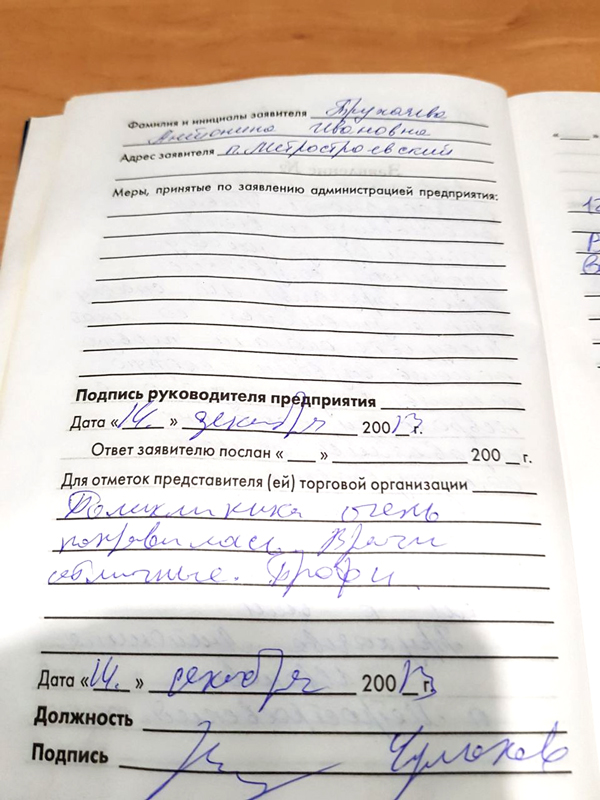 Фамилия и инициалы заявителя Трухачёва
Антонина Ивановна
Адрес заявителя п. Метростроевский
Меры, принятые по заявлению администрацией предприятия:
Подпись руководителя предприятия
Дата «14.» декабря 20013 г.
Ответ заявителю послан «___» ____________ 200__г.
Для отметок представителя (ей) торговой организации
Поликлиника очень
понравилась. Врачи
отличные. Профи.
Дата «14.» декабря 20013 г.
Должность
Подпись Чулаков